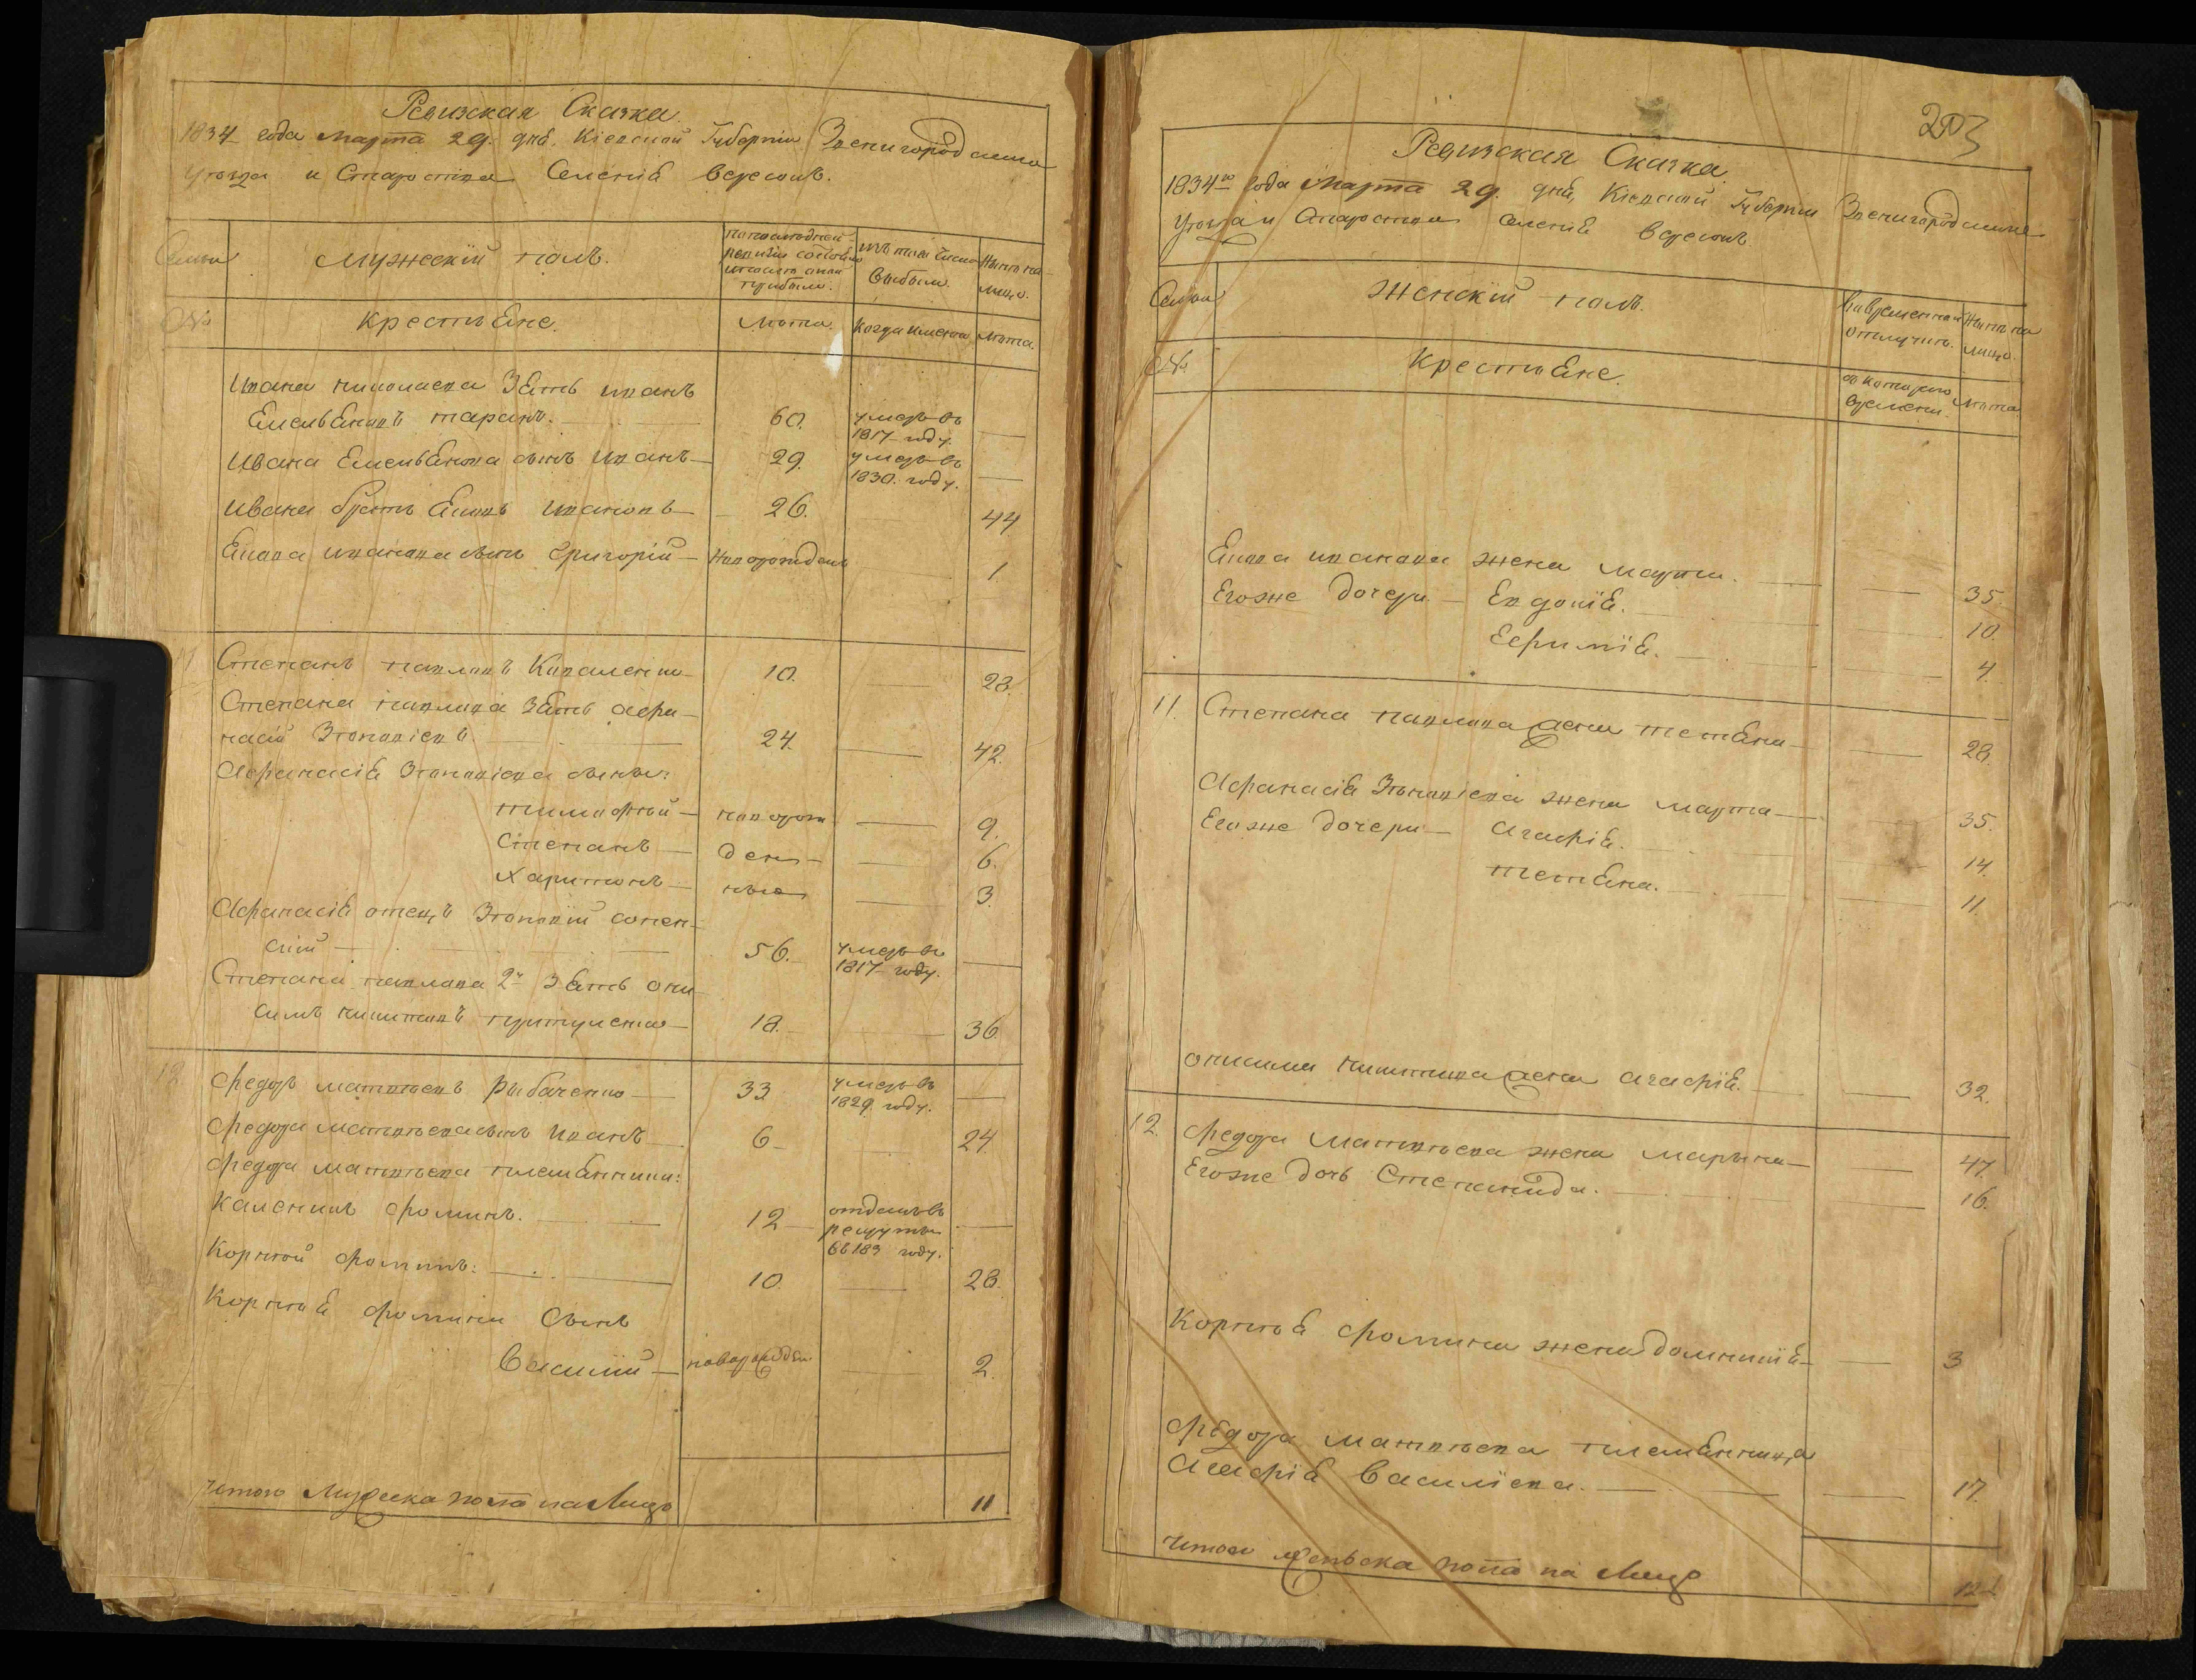 Ревизская Сказка.
1834 года марта 29. дня. Кіевской Губерніи Звенигородскаго
уезда и Староства Селенія
Семьи
Мужескій полъ.
по последней ревизіи состояло и после оной прибыло.
изъ того числа выбыло.
Ныне на лицо.
№
крестьяне.
лета.
когда именно
лета.
Ивана николаева Зять иванъ
Емельяновъ таранъ.
60.
умеръ въ 1817 году.
Ивана Емельянова сынъ иванъ
29.
умеръ въ 1830. году.
Ивана братъ Яковъ ивановъ
26.
44
Якова иванова сынъ Григорій
новорожденъ
1.
11
Степанъ павловъ Коваленко
10.
28.
Степана павлова Зять афа-
насій Зеновіевъ
24.
42.
Афанасія Зеновіева сыновья:
тимофтей
новорож
9.
Степанъ
ден
6.
Харитонъ
ные
3.
Афанасія отецъ Зеновій
56.
умеръ въ 1817 году.
Степана павлова 2й зять они
симъ никитинъ притуленко
18.
36
12
Федоръ матвеевъ Рыбаченко
33
умеръ въ 1829. году.
Федора матвеева сынъ иванъ
6
24
Федора матвеева племянники:
Каленикъ фоминъ.
12
отданъ въ рекруты
въ 183 году.
Корней фоминъ:
10.
28.
Корнея фомина Сынъ
Василій
новорожден
2.
Итого Мужеска пола на Лицо
11
203
Ревизская Сказка.
1834го года марта 29. дня, Кіевской Губерніи Звенигородскаго
уезда и Староства Селенія
Семьи
Женскій полъ.
Во временной отлучке.
Ныне на лицо.
№
Крестьяне.
съ котораго времени.
лета
Якова иванова жена марта.
35.
Егоже дочери Евдокія.
10.
Ефимія.
4.
11.
Степана павлова жена тетяна
28.
Афанасія Зеновіева жена марта
35.
Егоже дочери Агафія.
14.
тетяна.
11.
онисима никитина жена агафія.
32.
12.
федора матвеева жена марына
47.
Егоже дочь Степанида.
16.
Корнея фомина жена домникія
3
Федора матвеева племянница
Агафія Василіева.
17.
Итого Женьска пола на Лицо
12